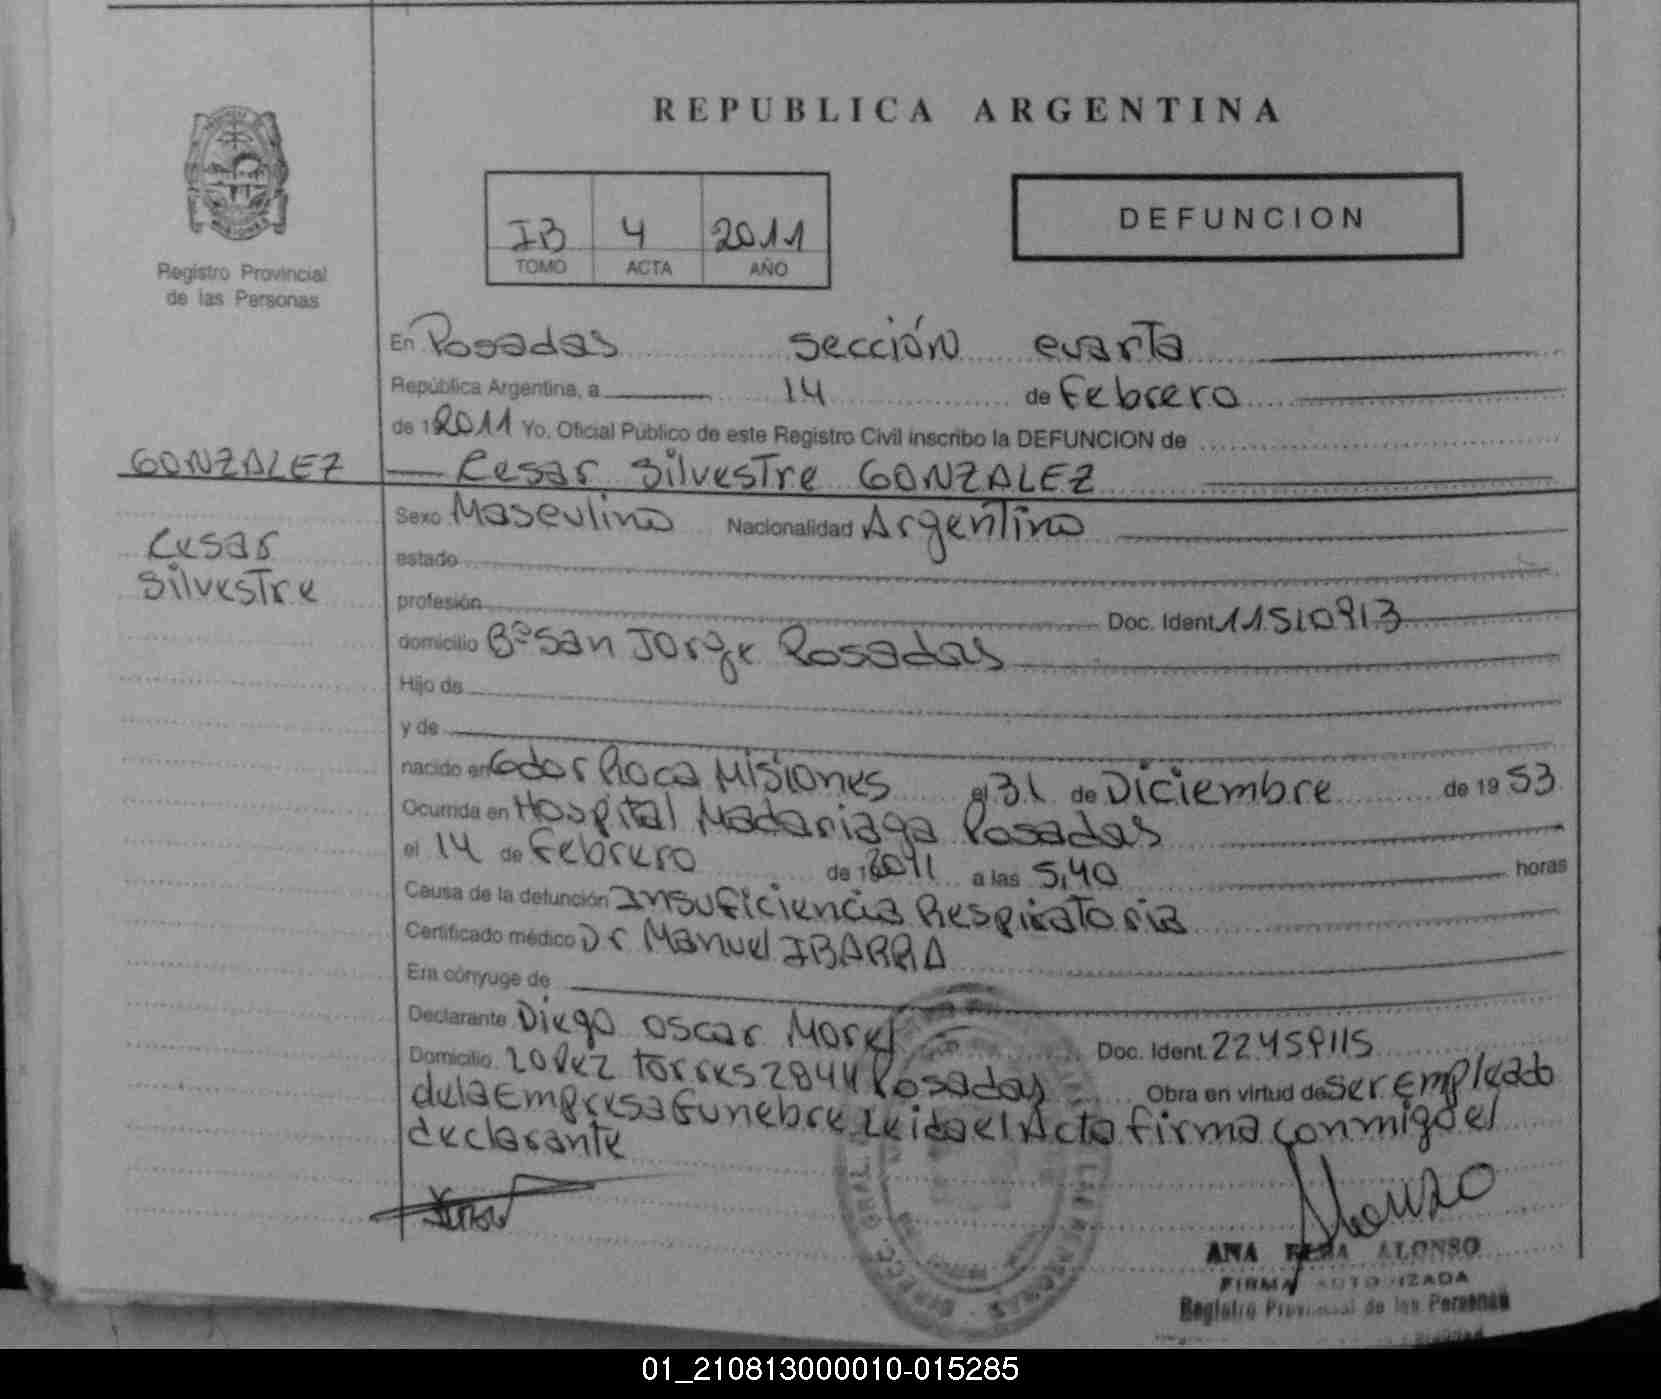 REPUBLICA ARGENTINA
IB 4 2011
TOMO ACTA AÑO
DEFUNCION
Registro Provincial
de las Personas
En Posadas sección cuarta
República Argentina, a 14 de Febrero
de 2011 Yo, Oficial Público de este Registro Civil inscribo la DEFUNCION de
GONZALEZ
Cesar Silvestre GONZALEZ
Cesar
Silvestre
Sexo Masculino Nacionalidad Argentino
estado
profesión Doc. Ident. 11.510.913
domicilio Bº San Jorge Posadas
Hijo de
y de
nacido en Gdor Roca Misiones el 31 de Diciembre de 1953
Ocurrida en Hospital Madariaga Posadas
el 14 de Febrero de 2011 a las 5,40 horas
Causa de la defunción Insuficiencia Respiratoria
Certificado médico Dr Manuel IBARRA
Era cónyuge de
Declarante Diego Oscar Morel Doc. Ident. 22459115
Domicilio Lopez Torres 2844 Posadas Obra en virtud de ser Empleado
de la Empresa Funebre Leida el Acta firma conmigo el
declarante
ANA ALONSO
FIRMA AUTORIZADA
Registro Provincial de las Personas
01_210813000010-015285